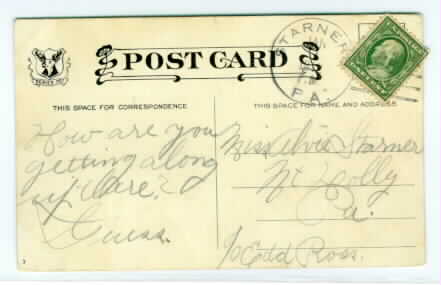 POST CARD
STARNERS
JAN
PA.
THIS SPACE FOR CORRESPONDENCE
THIS SPACE FOR NAME AND ADDRESS
How are you
getting along
up there?
Guess.
Miss Elvie Starner
Mt Holly
Pa.
c/o Edd Ross.